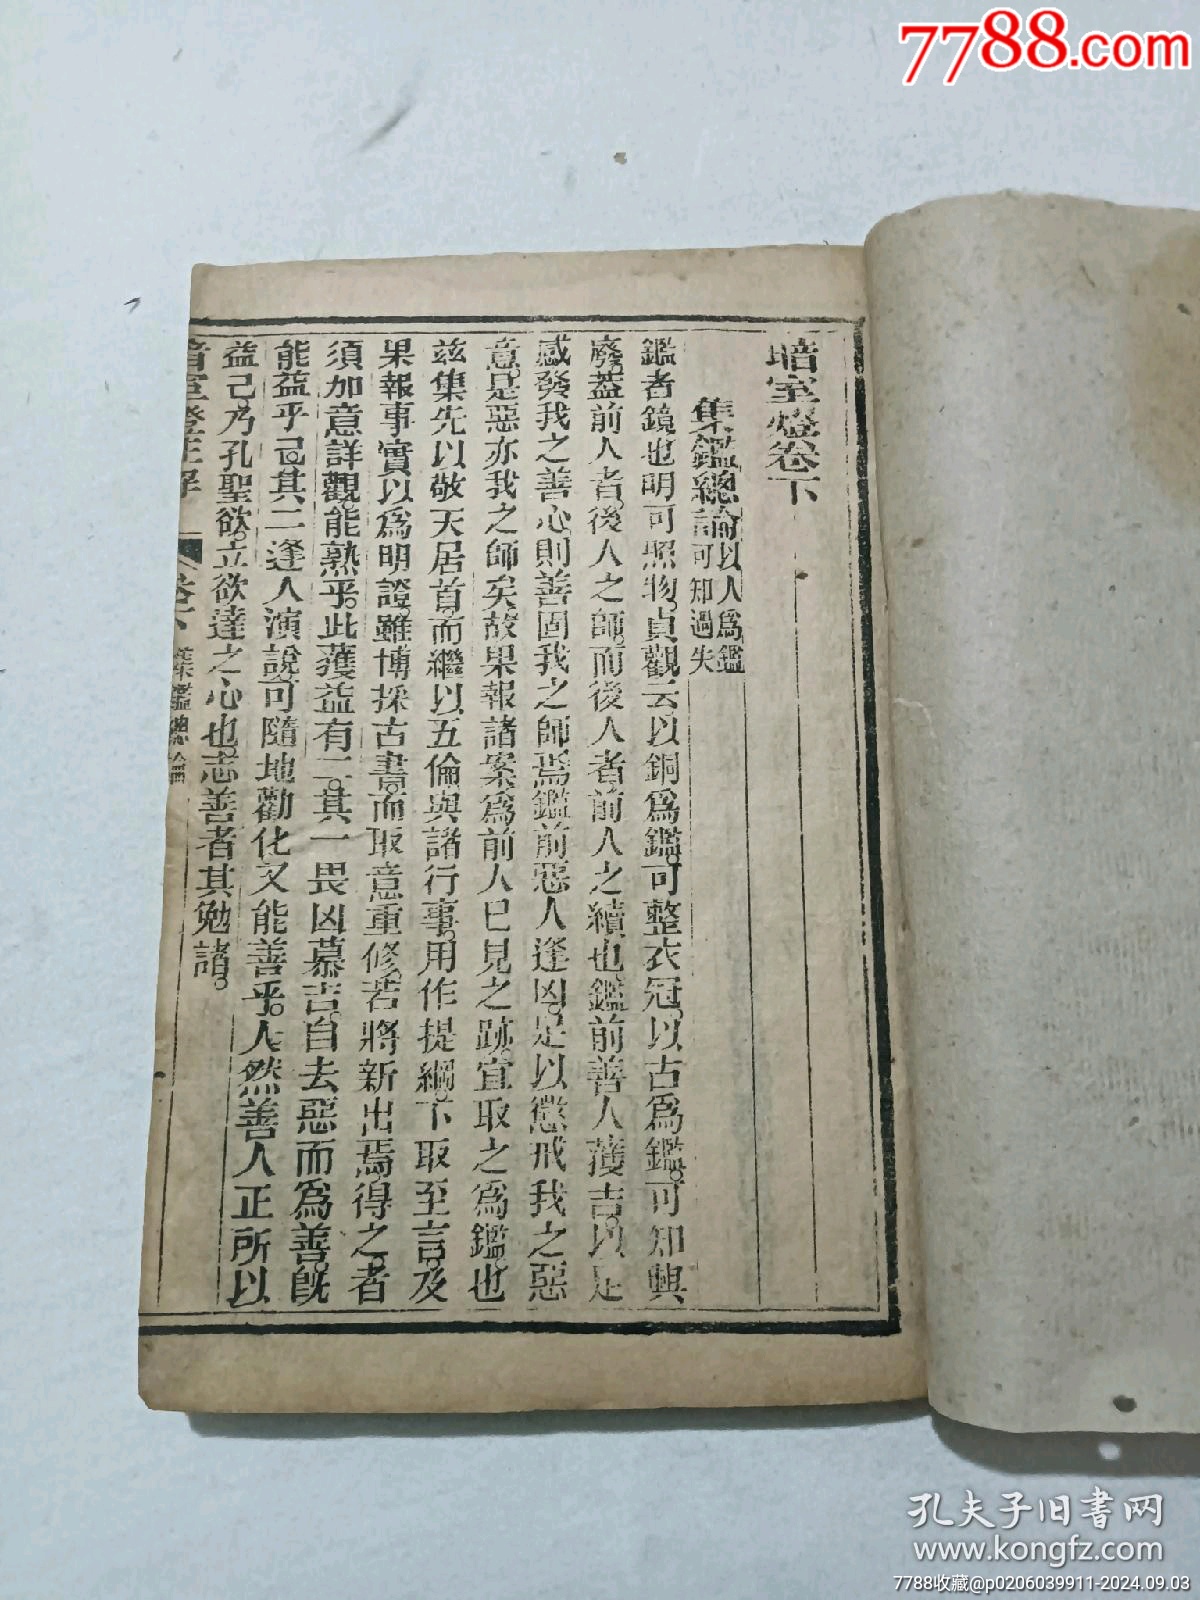 7788.com
暗室燈卷下
集鑑總論以人為鑑可知過失
鑑者鏡也明可照物貞觀云以銅為鑑。可整衣冠。以古為鑑。可知興
廢。蓋前人者。後人之師。而後人者。前人之續也。鑑前善人獲吉。以是
感發我之善心。則善固我之師焉。鑑前惡人逢凶。是以懲戒我之惡
意。是惡亦我之師矣。故果報諸案。為前人已見之跡。宜取之為鑑。也
茲集先以敬天居首。而繼以五倫與諸行事。用作提綱。下取至言。及
果報事實以為明證。雖博採古書。而取意重修。若將新出焉。得之。者
須加意詳觀。能熟乎。此獲益有二。其一畏凶慕吉。自去惡而為善。旣
能益乎己。其二逢人演說。可隨地勸化又能善乎。人然善人正所以
益己。乃孔聖欲。立欲達之心也。志善者其勉諸。
集鑑總論
孔夫子旧书网
www.kongfz.com
7788收藏@p0206039911-2024.09.03